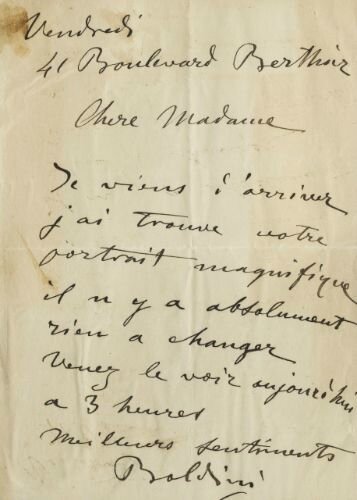 Vendredi
41 Boulevard Berthier
Chere Madame
Je viens d'arriver
j'ai trouve votre
portrait magnifique
il n y a absolument
rien a changer
Venez le voir aujourd'hui
a 3 heures
Meilleurs sentiments
Boldini